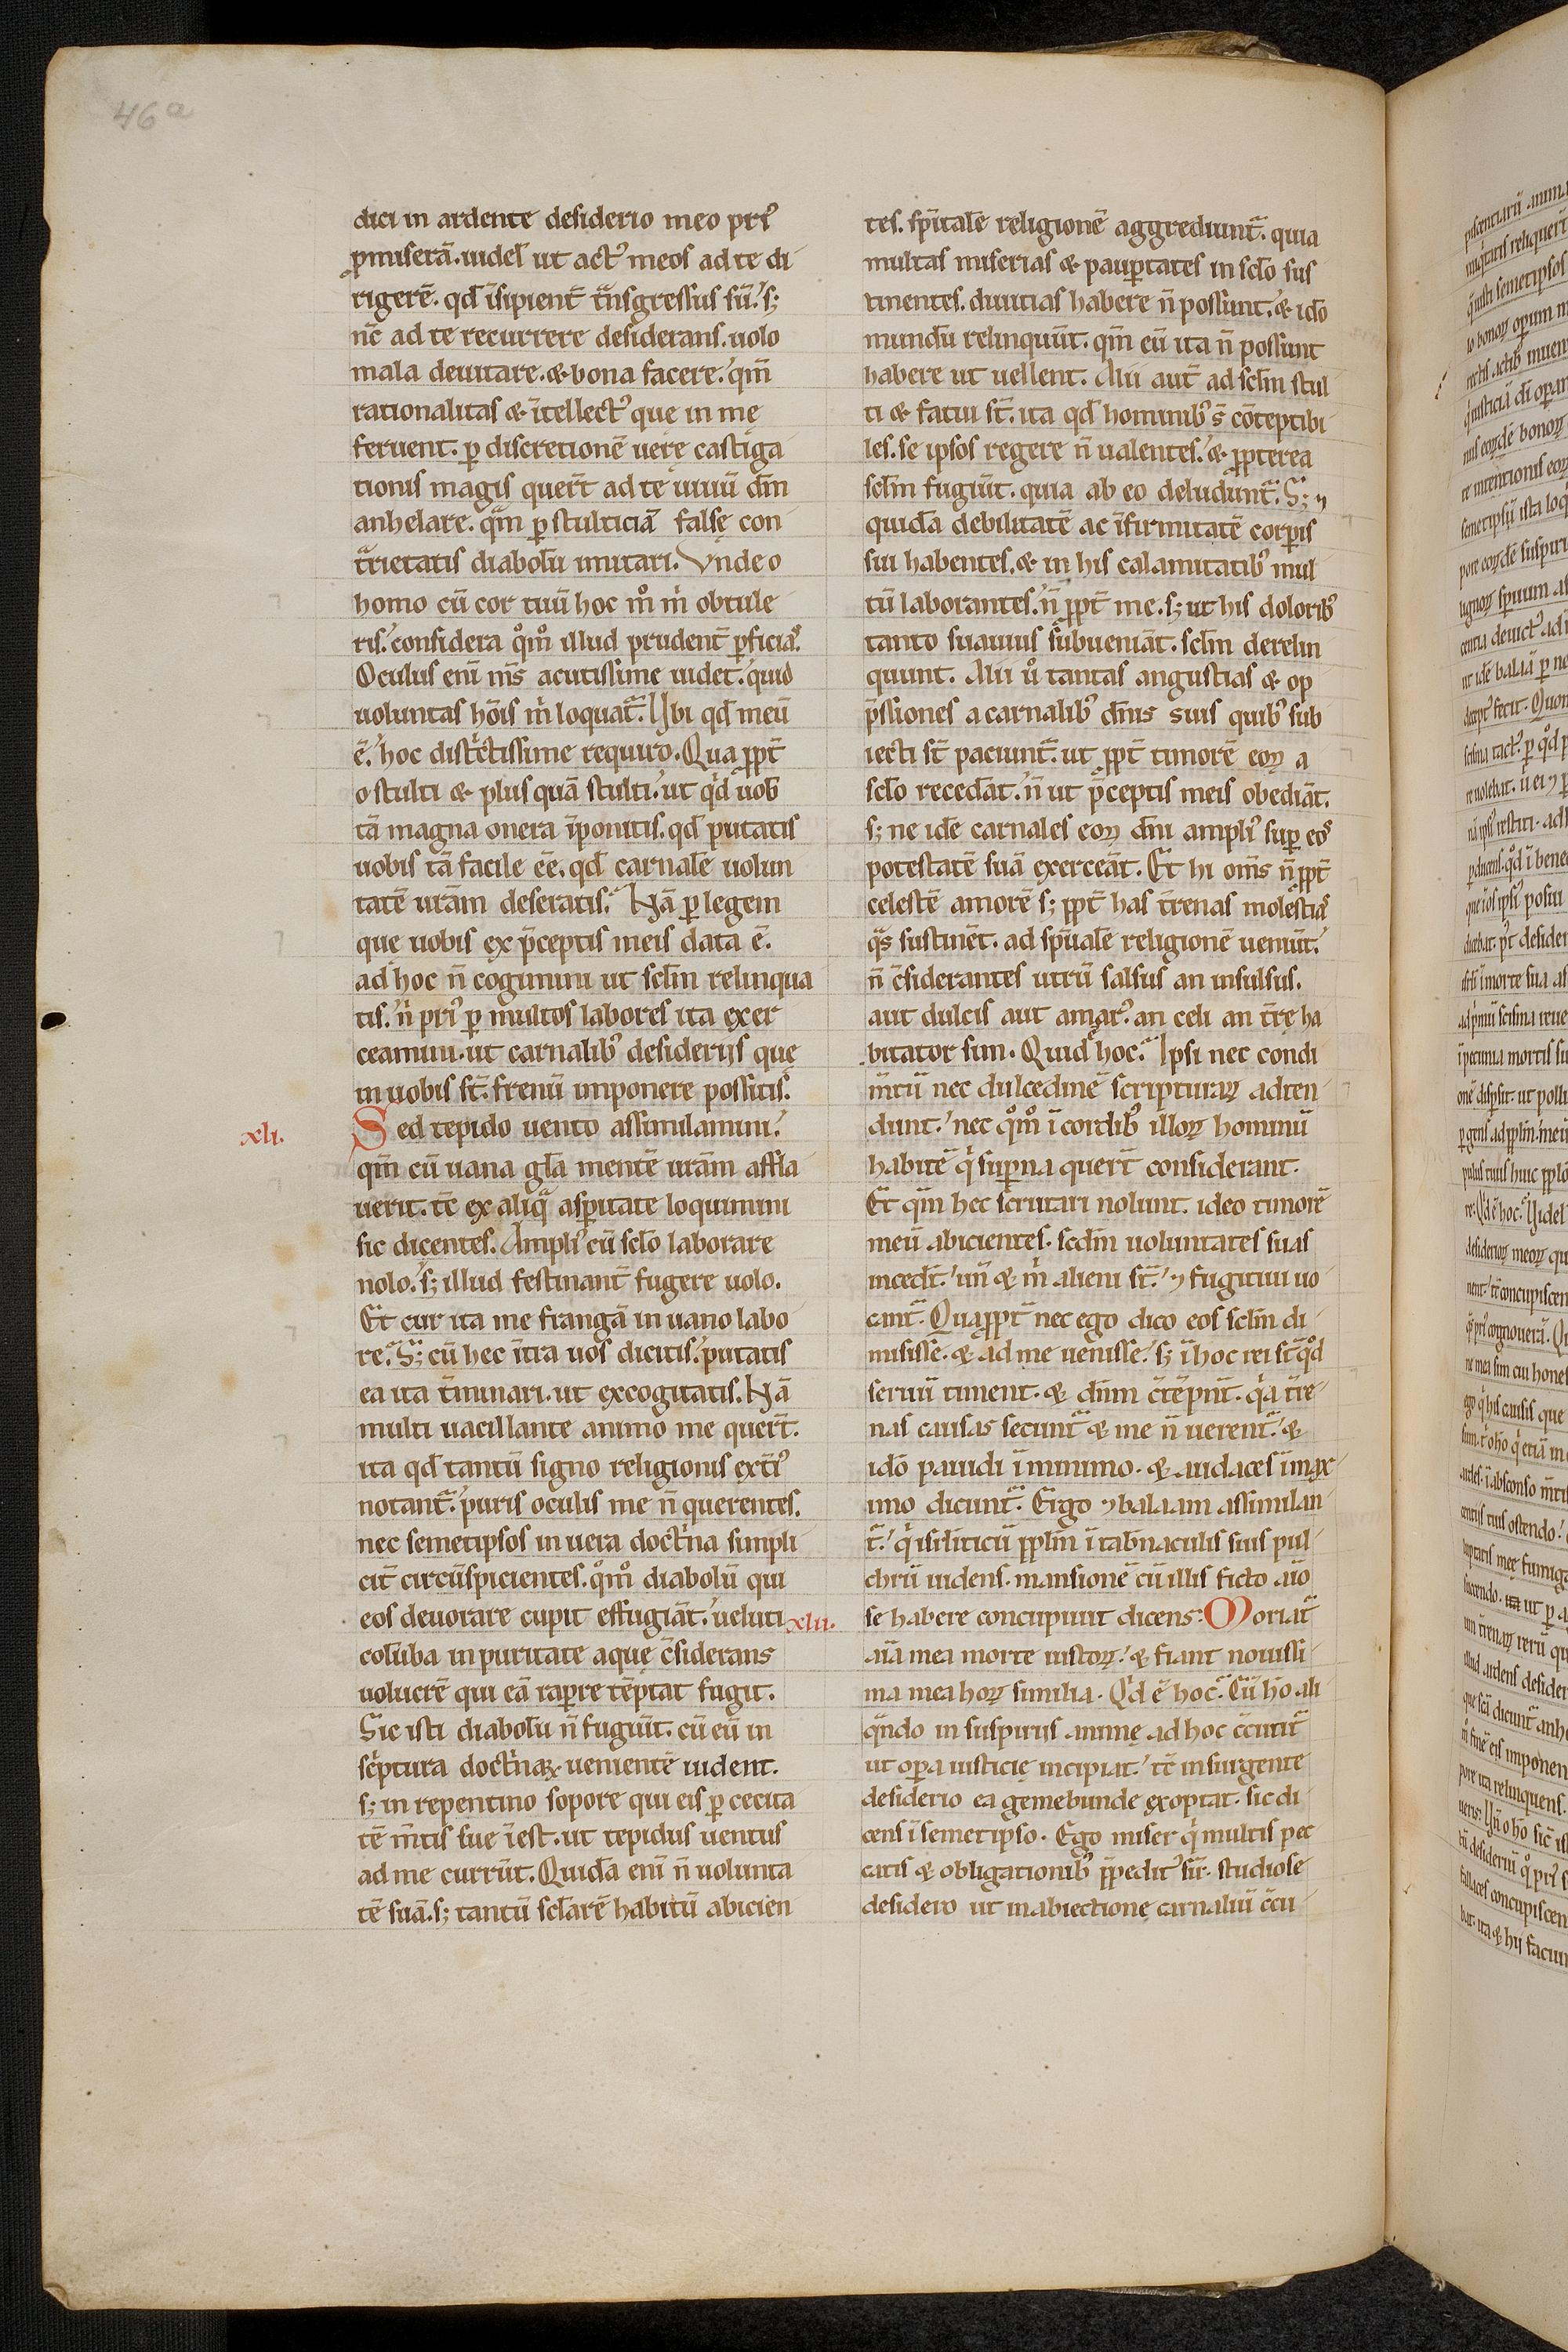 46a
dici in ardente desiderio meo pri᾽
ꝓmiserā. uidel᾽ ut act᾽ meos ad te di
rigerē. qd̄ īsipient̄ t̄nsgressus sū. sꝫ
nc̄ ad te recurrere desiderans. uolo
mala deuitare. & bona facere. qm̄
rationalitas & ītellect᾽ que in me
feruent. ꝑ discretionē uerę castiga
tionis magis quer̄t ad te uiuū dm̄
anhelare. qm̄ ꝑ stulticiā falsę con
t̄rietatis diabolū imitari. Vnde o
homo cū cor tuū hoc mͦ mⁱ obtule
ris. considera qͦmͦ illud prudent̄ ꝑficias.
Oculus enī ms̄ acutissime uidet. quid
uoluntas hōis mⁱ loquat̄. Ubi qd̄ meū
ē. hoc distⁱctissime requiro. Qua ꝓpt̄
o stulti & plus quā stulti. ut qⁱd uob̄
tā magna onera īponitis. qd̄ putatis
uobis tā facile ēē. qd̄ carnalē uolun
tatē ur̄am deseratis. Nā ꝑ legem
que uobis ex p̄ceptis meis data ē.
ad hoc n̄ cogimini ut sclm̄ relinqua
tis. n̄ pri᾽ ꝑ multos labores ita exer
ceamini. ut carnalib᾽ desiderijs quę
in uobis st̄. frenū imponere possitis.
xli.
Sed tepido uento assimilamini.
qm̄ cū uana gl̄a mentē ur̄am affla
uerit. tc̄ ex aliqᵃ asꝑitate loquimini
sic dicentes. Ampli᾽ cū sclo laborare
nolo. sꝫ illud festinant̄ fugere uolo.
Et cur ita me frangā in uano labo
re. Sꝫ cū hec īt̄ra uos dicitis. putatis
ea ita t̄minari. ut excogitatis. Nā
multi uacillante animo me quer̄t.
ita qd̄ tantū signo religionis exti᾽
notant̄. puris oculis me n̄ querentes.
nec semetipsos in uera doctⁱna simpli
cit̄ circūspicientes. qͦmͦ diabolū qui
eos deuorare cupit effugiāt. ueluti
colūba in puritate aquę c̄siderans
uolucrē qui eā raꝑe tēptat fugit.
Sic isti diabolū n̄ fugiūt. cū eū in
scⁱptura doctⁱnaꝝ uenientē uident.
sꝫ in repentino sopore qui eis ꝑ cecita
tē m̄tis sue īest. ut tepidus uentus
ad me currūt. Quidā enī n̄ uolunta
tē suā. sꝫ tantū sclarē habitū abicien
tes. sp̄italē religionē aggrediunt̄. quia
multas miserias & pauꝑtates in sclo sus
tinentes. diuitias habere n̄ possunt. & ido
mundū relinquūt. qm̄ eū ita n̄ possunt
habere ut uellent. Alii aut̄ ad sclm̄ stul
ti & fatui st̄. ita qd̄ hominib᾽ s̄ cōteptibi
les. se ipsos regere n̄ ualentes. & ꝓpterea
sclm̄ fugiūt. quia ab eo deludunt̄. Sꝫ ⁊
quidā debilitatē ac īfirmitatē corꝑis
sui habentes. & in his calamitatib᾽ mul
tū laborantes. n̄ ꝓpt̄ me. sꝫ ut his dolorib᾽
tanto suauius subueniāt. sclm̄ derelin
quunt. Alii uͦ tantas angustias & op
p̄ssiones a carnalib᾽ dn̄is suis quib᾽ sub
iecti st̄ paciunt̄. ut ꝓpt̄ timorē eoꝝ a
sclo recedāt. n̄ ut p̄ceptis meis obediāt.
sꝫ ne idē carnales eoꝝ dn̄i ampli᾽ suꝑ eos
potestatē suā exerceāt. Et hi om̄s n̄ ꝓpt̄
celestē amorē sꝫ ꝓpt̄ has t̄renas molestias
qᵃs sustinēt. ad sp̄ualē religionē ueniūt.
n̄ c̄siderantes utrū salsus an insulsus.
aut dulcis aut amar᾽. an celi an t̄rę ha
bitator sim. Quid hoc. Ipsi nec condi
m̄tū nec dulcedinē scripturaꝝ adten
dunt. nec qͦmͦ ī cordib᾽ illoꝝ hominū
habitē qⁱ suꝑna quer̄t considerant.
Et qm̄ hec scrutari nolunt. ideo timorē
meū abicientes. scdm̄ uoluntates suas
incedt̄. un̄ & mⁱ alieni st̄. ⁊ fugitiui uo
cant̄. Quaꝓpt̄ nec ego dico eos sclm̄ di
misisse. & ad me uenisse. sꝫ ī hoc rei st̄ qͦd
seruū timent. & dn̄m c̄tēpn̄t. qⁱa t̄re
nas causas secunt̄ & me n̄ uerent̄. &
ido pauidi ī minimo. & audaces ī max
imo dicunt̄. Ergo ⁊ balaam assimilan
t̄. qⁱ isrl̄iticū pplm̄ ī tab̄naculis suis pul
chrū uidens. mansionē cū illis ficto aīo
xlii.
se habere concupiuit dicens: Moriat̄
aīa mea morte iustoꝝ. & fiant nouissi
ma mea hoꝝ similia. Qͥd ē hoc. Cū ho ali
qn̄do in suspiriis animę ad hoc c̄cutit̄
ut oꝑa iusticię incipiat. tc̄ insurgente
desiderio ea gemebunde exoptat. sic di
cens ī semetipso. Ego miser qⁱ multis pec
catis & obligationib᾽ p̄pedit᾽ sū. studiose
desidero ut in abiectione carnaliū c̄cu